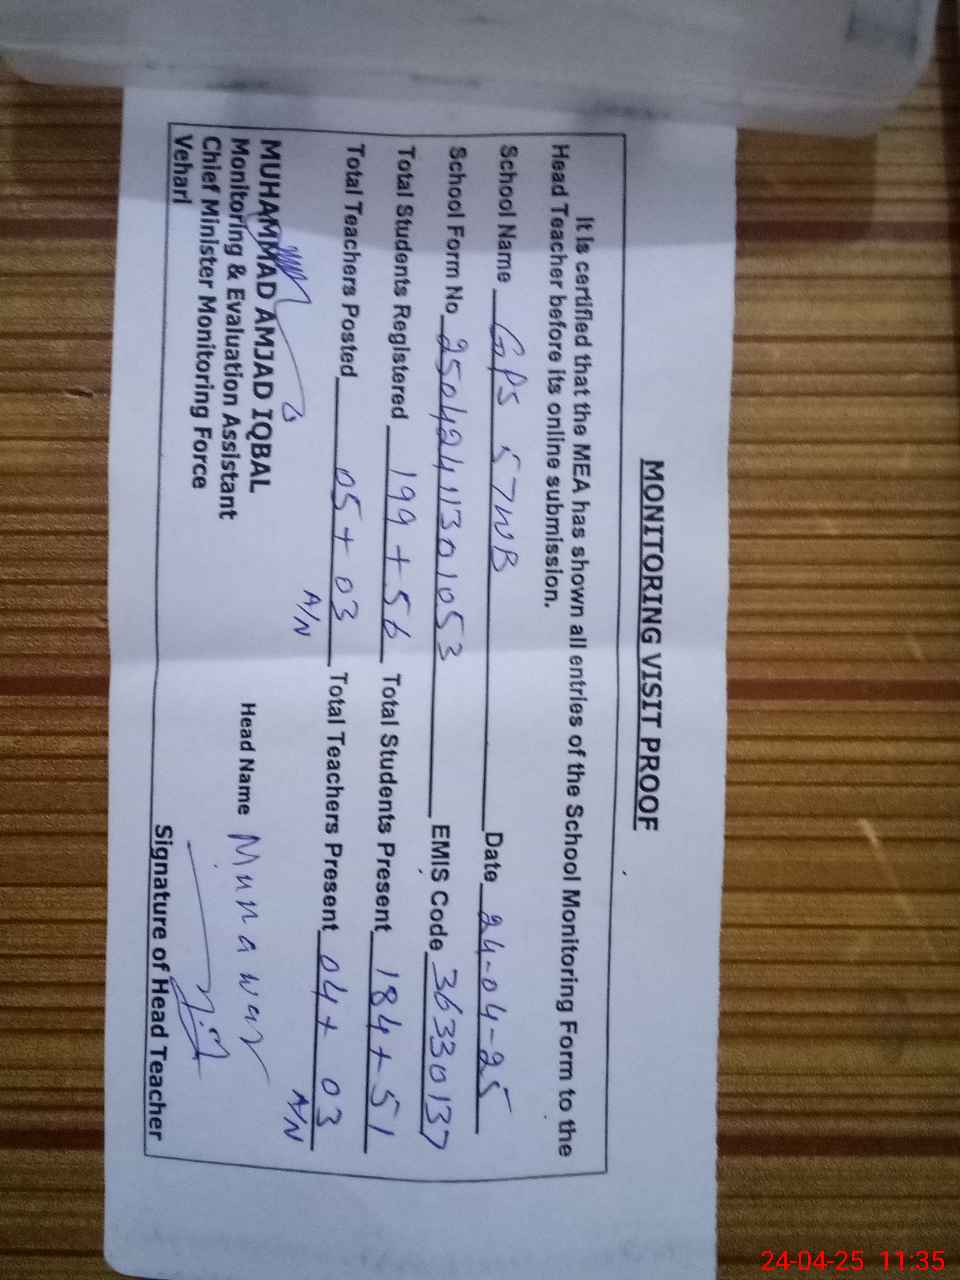 MONITORING VISIT PROOF
It is certified that the MEA has shown all entries of the School Monitoring Form to the
Head Teacher before its online submission.
School Name GPS 57WB Date 24-04-25
School Form No 25042411301053 EMIS Code 36330137
Total Students Registered 199 + 56 Total Students Present 184 + 51
Total Teachers Posted 05 + 03 Total Teachers Present 04 + 03
A/N A/N
MUHAMMAD AMJAD IQBAL
Monitoring & Evaluation Assistant
Chief Minister Monitoring Force
Vehari
Head Name Munawar
Signature of Head Teacher
24-04-25 11:35